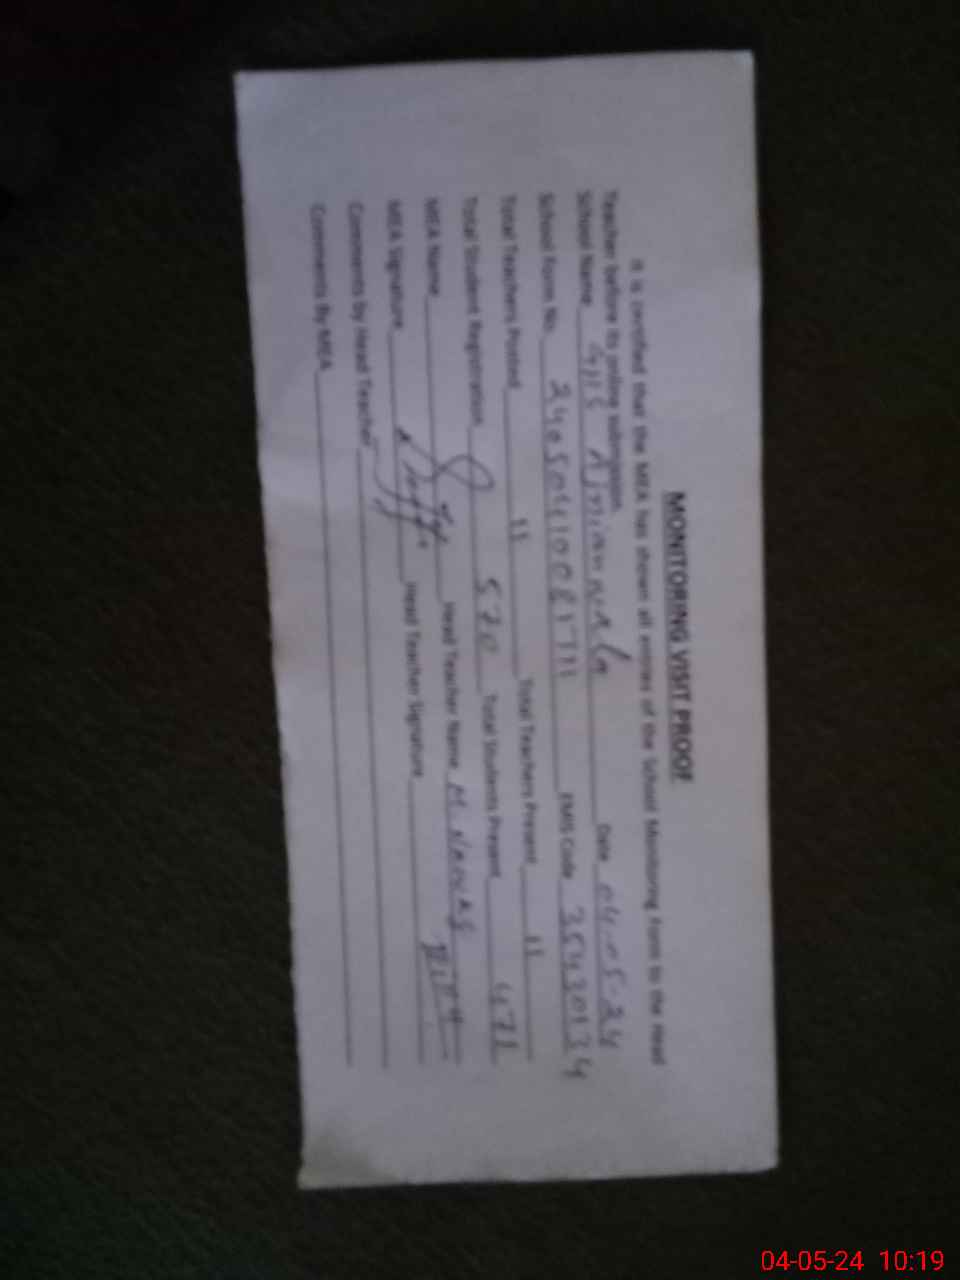 MONITORING VISIT PROOF
It is certified that the MEA has shown all entries of the School Monitoring Form to the Head
Teacher before its online submission.
School Name GHS Date 04-05-24
School Form No. EMIS Code 35430134
Total Teachers Posted 11 Total Teachers Present 11
Total Student Registration 570 Total Students Present 471
MEA Name Head Teacher Name M. Nawas
MEA Signature Head Teacher Signature
Comments by Head Teacher
Comments By MEA
04-05-24 10:19